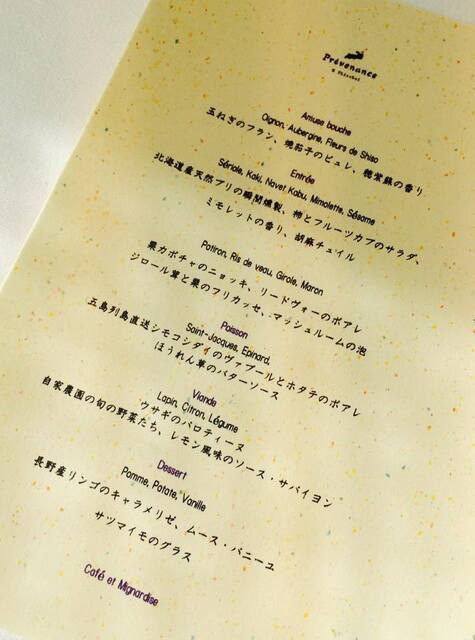 Prévenance
Amuse bouche
Oignon, Aubergine, Fleurs de Shiso
玉ねぎのフラン、焼茄子のピュレ、穂紫蘇の香り
Entrée
Sériole, Kaki, Navet Kabu, Mimolette, Sésame
北海道産天然ブリの瞬間燻製、柿とフルーツカブのサラダ、
ミモレットの香り、胡麻チュイル
Potiron, Ris de veau, Girole, Maron
栗カボチャのニョッキ、リードヴォーのポアレ
ジロール茸と栗のフリカッセ、マッシュルームの泡
Poisson
Saint-Jacques, Epinard,
五島列島直送シモコシダイのヴァプールとホタテのポアレ
ほうれん草のバターソース
Viande
Lapin, Citron, Légume
ウサギのバロティーヌ
自家農園の旬の野菜たち、レモン風味のソース・サバイヨン
Dessert
Pomme, Patate, Vanille
長野産リンゴのキャラメリゼ、ムース・バニーユ
サツマイモのグラス
Café et Mignardise